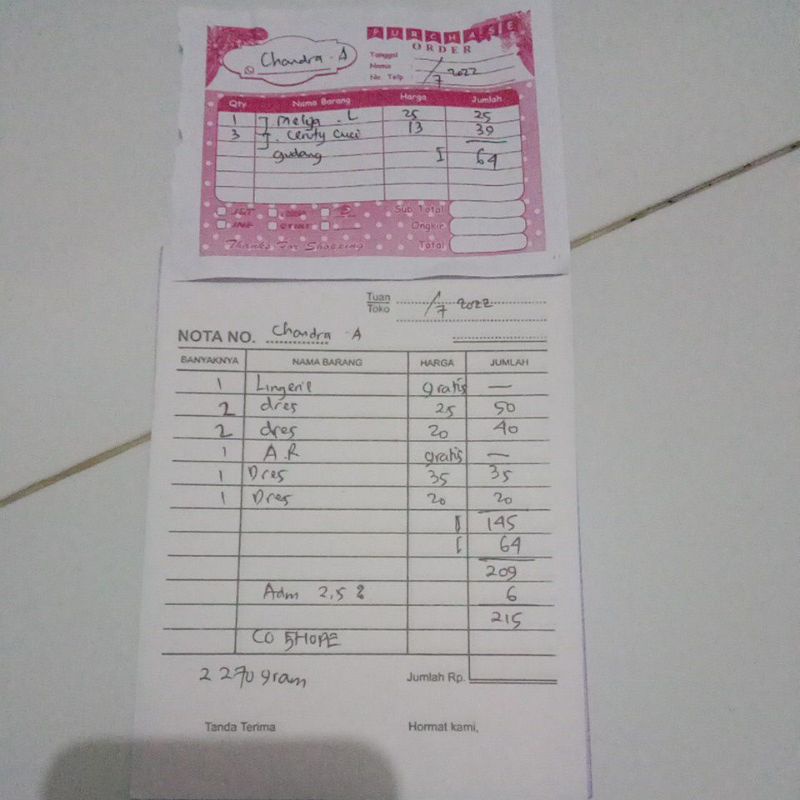 PURCHASE
ORDER
Chandra . A
Tanggal
Nama
No. Telp
/7 2022
Qty Nama Barang Harga Jumlah
1 L 25 25
3 13 39
gudang 64
J&T
JNE
Sub Total
Ongkir
Total
Thanks For Shopping
Tuan
Toko
/7 2022
NOTA NO. Chandra . A
BANYAKNYA NAMA BARANG HARGA JUMLAH
1 Lingerie gratis —
2 dres 25 50
2 dres 20 40
1 A.R gratis —
1 Dres 35 35
1 Dres 20 20
145
64
209
Adm 2,5 % 6
215
CO SHOPE
2 270 gram
Jumlah Rp.
Tanda Terima Hormat kami,